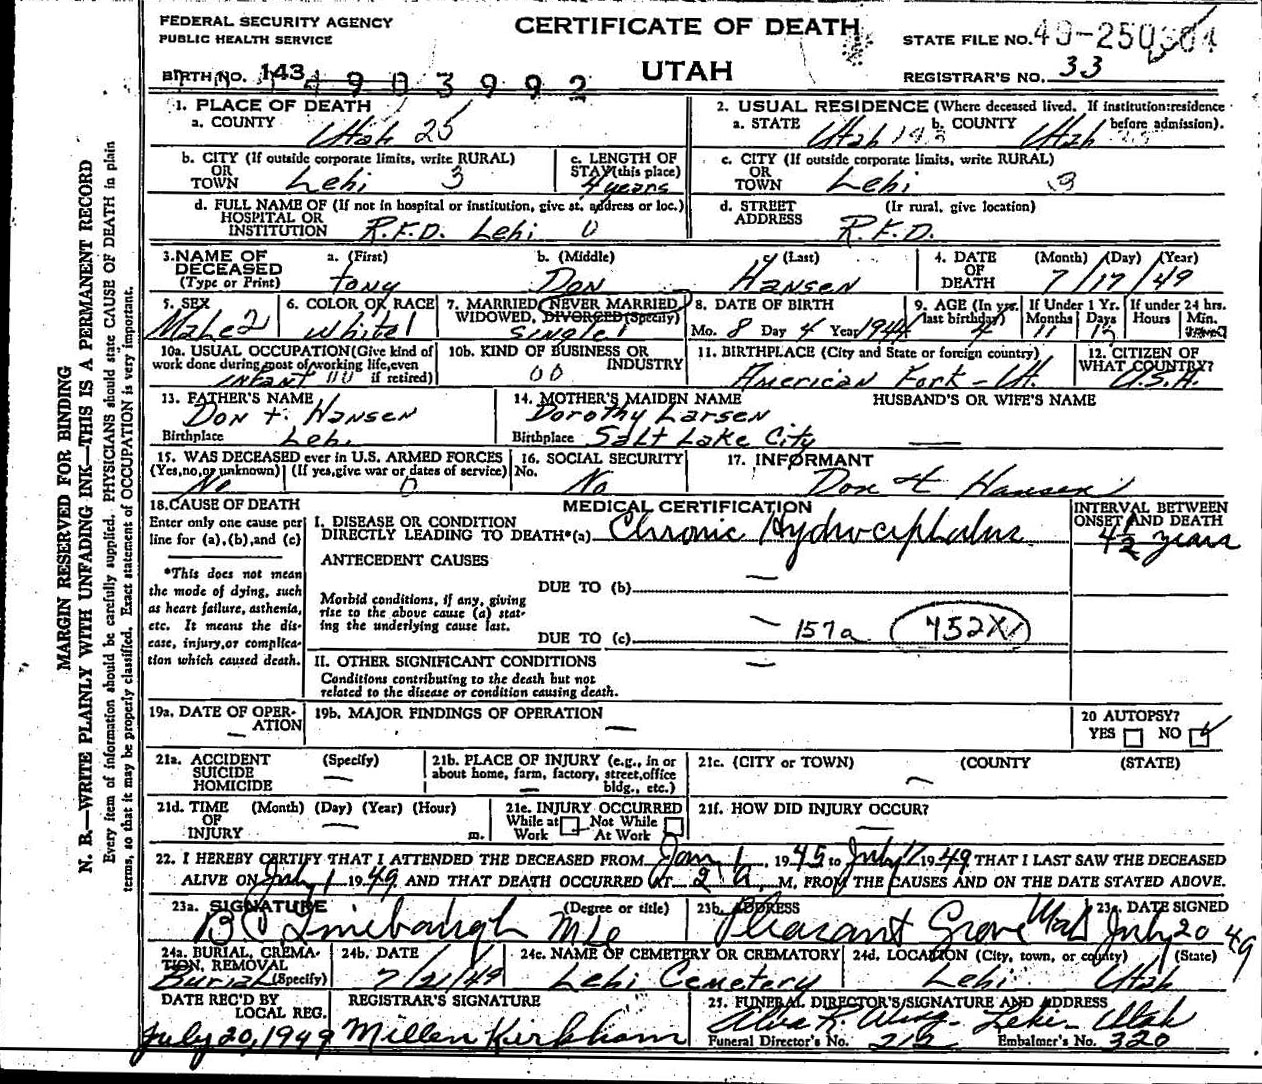 FEDERAL SECURITY AGENCY
PUBLIC HEALTH SERVICE
CERTIFICATE OF DEATH
STATE FILE NO. 49-250304
BIRTH NO. 143 4903992
UTAH
REGISTRAR'S NO. 33
1. PLACE OF DEATH
a. COUNTY Utah 25
2. USUAL RESIDENCE (Where deceased lived. If institution:residence before admission).
a. STATE Utah 143 b. COUNTY Utah
b. CITY (If outside corporate limits, write RURAL) OR TOWN Lehi 3
c. LENGTH OF STAY (this place) 4 years
c. CITY (If outside corporate limits, write RURAL) OR TOWN Lehi 3
d. FULL NAME OF (If not in hospital or institution, give st. address or loc.) HOSPITAL OR INSTITUTION R.F.D. Lehi 0
d. STREET ADDRESS (Ir rural, give location) R.F.D.
3. NAME OF DECEASED (Type or Print) a. (First) Tony b. (Middle) Don c. (Last) Hansen
4. DATE OF DEATH (Month) (Day) (Year) 7/17/49
5. SEX Male 2
6. COLOR OR RACE White 1
7. MARRIED, NEVER MARRIED, WIDOWED, DIVORCED (Specify) Single 1
8. DATE OF BIRTH Mo. 8 Day 4 Year 1944
9. AGE (In yrs. last birthday) 4 If Under 1 Yr. Months 11 Days 13 If under 24 hrs. Hours Min.
10a. USUAL OCCUPATION (Give kind of work done during most of working life, even if retired) Infant
10b. KIND OF BUSINESS OR INDUSTRY 00
11. BIRTHPLACE (City and State or foreign country) American Fork - Ut.
12. CITIZEN OF WHAT COUNTRY? U.S.A.
13. FATHER'S NAME Don F. Hansen
Birthplace Lehi
14. MOTHER'S MAIDEN NAME Dorothy Larsen
Birthplace Salt Lake City
HUSBAND'S OR WIFE'S NAME
15. WAS DECEASED ever in U.S. ARMED FORCES (Yes,no,or unknown) (If yes,give war or dates of service) No 0
16. SOCIAL SECURITY No. No
17. INFORMANT Don F. Hansen
18. CAUSE OF DEATH
Enter only one cause per line for (a),(b),and (c)
*This does not mean the mode of dying, such as heart failure, asthenia, etc. It means the disease, injury,or complication which caused death.
MEDICAL CERTIFICATION
I. DISEASE OR CONDITION DIRECTLY LEADING TO DEATH*(a) Chronic Hydrocephalus
INTERVAL BETWEEN ONSET AND DEATH 4½ years
ANTECEDENT CAUSES
DUE TO (b)
Morbid conditions, if any, giving rise to the above cause (a) stating the underlying cause last.
DUE TO (c) 157a 752X1
II. OTHER SIGNIFICANT CONDITIONS
Conditions contributing to the death but not related to the disease or condition causing death.
19a. DATE OF OPERATION
19b. MAJOR FINDINGS OF OPERATION
20 AUTOPSY? YES NO ✓
21a. ACCIDENT SUICIDE HOMICIDE (Specify)
21b. PLACE OF INJURY (e.g., in or about home, farm, factory, street,office bldg., etc.)
21c. (CITY or TOWN) (COUNTY) (STATE)
21d. TIME OF INJURY (Month) (Day) (Year) (Hour) m.
21e. INJURY OCCURRED While at Work Not While At Work
21f. HOW DID INJURY OCCUR?
22. I HEREBY CERTIFY THAT I ATTENDED THE DECEASED FROM Jan 1, 1945 to July 17 1949 THAT I LAST SAW THE DECEASED
ALIVE ON July 1 1949 AND THAT DEATH OCCURRED AT 2 A. M. FROM THE CAUSES AND ON THE DATE STATED ABOVE.
23a. SIGNATURE (Degree or title) B O Linebaugh MD
23b. ADDRESS Pleasant Grove Utah
23c. DATE SIGNED July 20 49
24a. BURIAL, CREMATION, REMOVAL (Specify) Burial
24b. DATE 7/21/49
24c. NAME OF CEMETERY OR CREMATORY Lehi Cemetery
24d. LOCATION (City, town, or county) (State) Lehi Utah
DATE REC'D BY LOCAL REG. July 20, 1949
REGISTRAR'S SIGNATURE Millen Kirkham
25. FUNERAL DIRECTOR'S SIGNATURE AND ADDRESS Alva R. Wing - Lehi - Utah
Funeral Director's No. 212 Embalmer's No. 320
MARGIN RESERVED FOR BINDING
N. B.—WRITE PLAINLY WITH UNFADING INK—THIS IS A PERMANENT RECORD
Every item of information should be carefully supplied. PHYSICIANS should state CAUSE OF DEATH in plain
terms, so that it may be properly classified. Exact statement of OCCUPATION is very important.